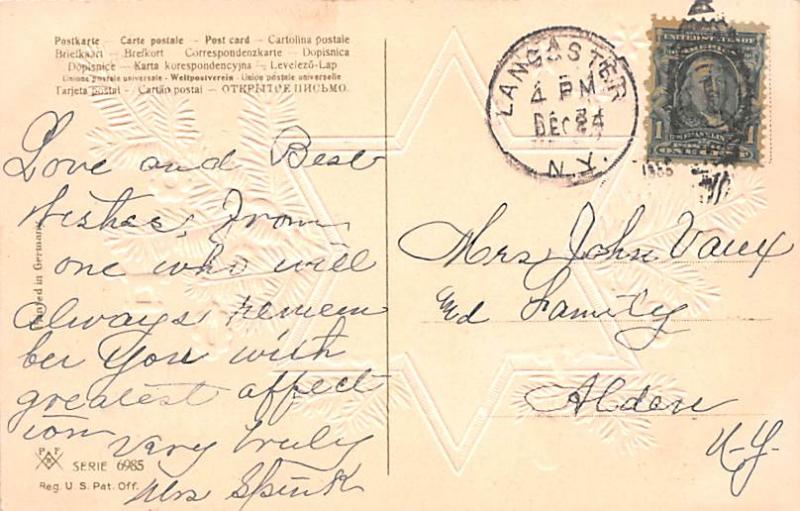 Postkarte - Carte postale - Post card - Cartolina postale
Briefkaart - Brefkort - Correspondenzkarte - Dopisnica
Dopisnice - Karta korespondencyjna - Levelező-Lap
Unione postale universale - Weltpostverein - Union postale universelle
Tarjeta postal - Cartão postal - ОТКРЫТОЕ ПИСЬМО.
LANCASTER
4 PM
DEC 24
N.Y.
UNITED STATES OF
AMERICA
1
1
Love and Best
Wishes, From
one who will
always remem
ber You with
greatest affect
ion
Vary truly
Mrs Spink
Printed in Germany
Mrs John Vaux
nd Family
Alden
N-Y-
PFB
SERIE 6985
Reg. U. S. Pat. Off.